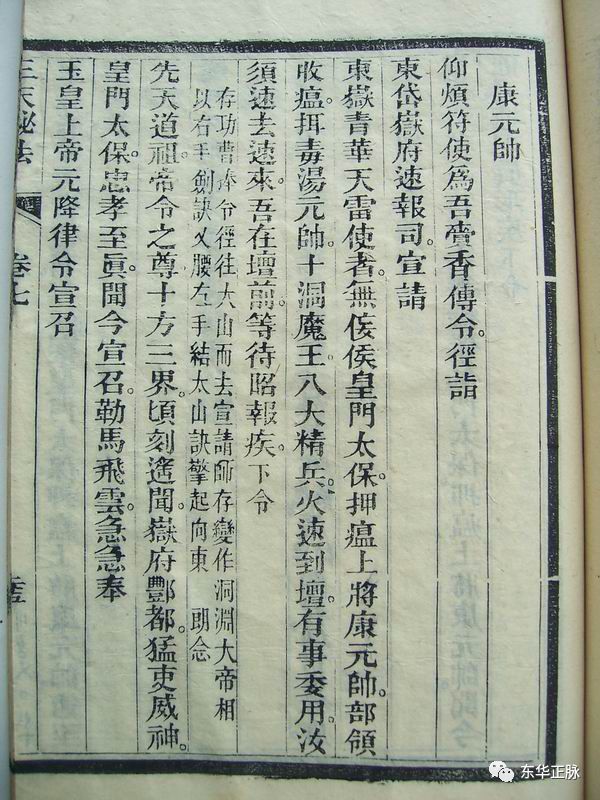 康元帥
仰煩符使爲吾賫香傳令。徑詣
東岱嶽府速報司。宣請
東嶽青華天雷使者。無佞侯皇門太保。押瘟上將康元帥。部領
收瘟。揖毒湯元帥。十洞魔王。八大精兵。火速到壇。有事委用。汝
須速去速來。吾在壇前等待昭報。疾。下令
存功曹捧令徑往太山而去宣請師存變作洞淵大帝相
以右手劍訣叉腰左手結太山訣擎起向東　朗念
先天道祖。帝令之尊。十方三界。頃刻遙聞。嶽府酆都。猛吏威神。
皇門太保。忠孝至眞。聞今宣召。勒馬飛雲。急急奉
玉皇上帝元降律令宣召
三天祕法
卷七
东华正脉